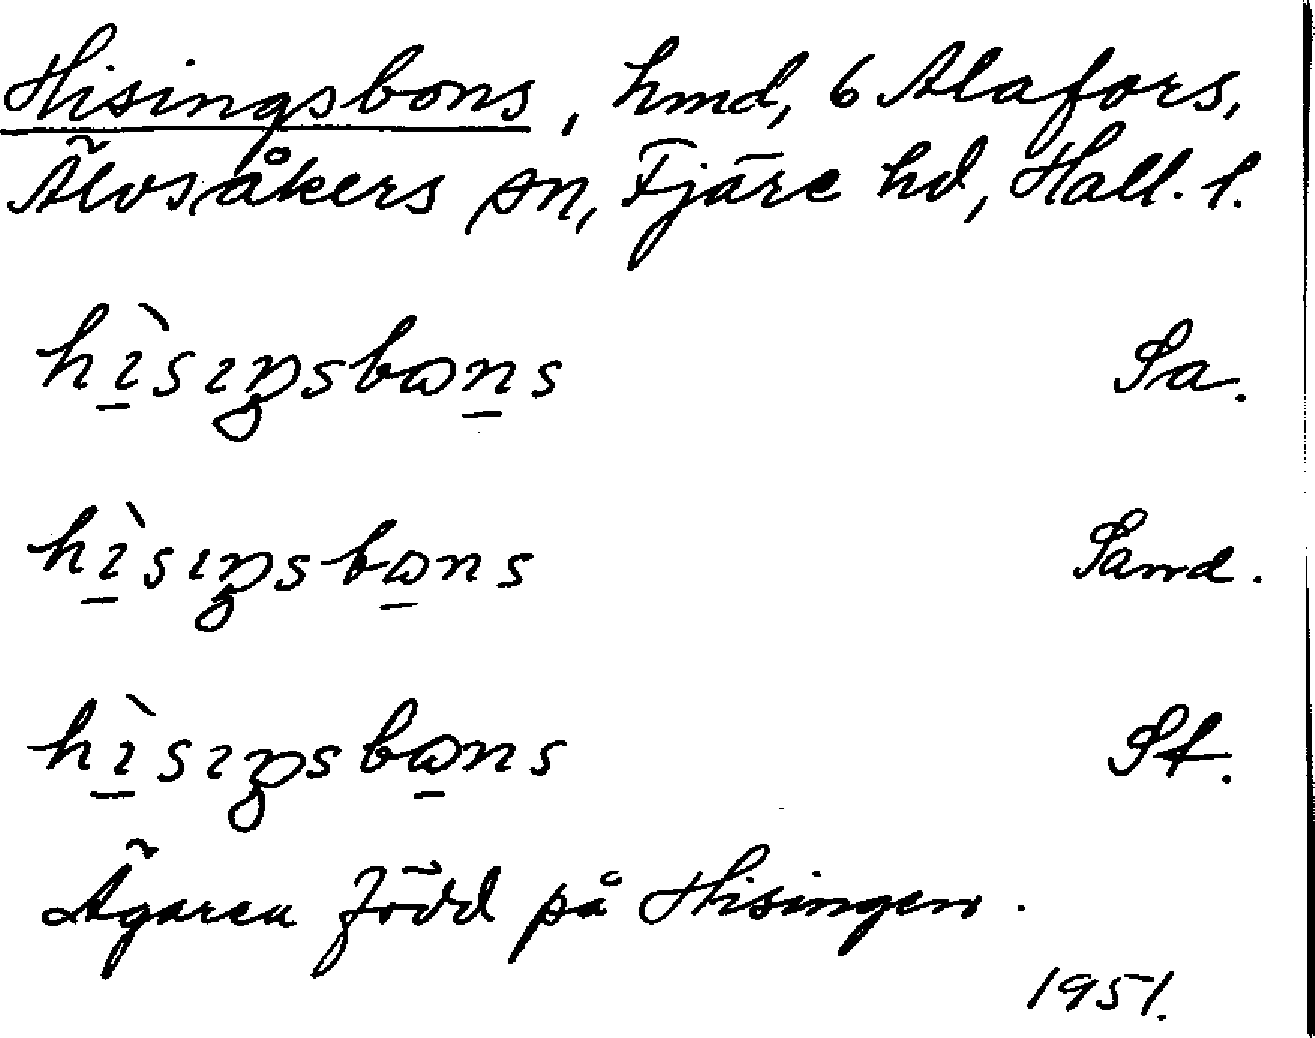 Hisingsbons, hmd, 6 Alafors,
Älvsåkers sn, Fjäre hd, Hall. l.
hı�َ̀sıŋsbωns Sa.
hı̀sıŋsbωns Sand.
hı̀sıŋsbωns St.
Ägaren född på Hisingen.
1951.